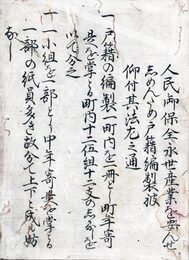 人民御保全永世産業を営ん せ
しめんため戸籍編製被
仰付其法左之通
一戸籍の編製一町内を一冊とし町年寄
是を掌る町内十二伍組十二支のしるしを
以て分之
一小組を一部とり中年寄是を掌る
一部の紙員多き故分て上下と成も妨
なし